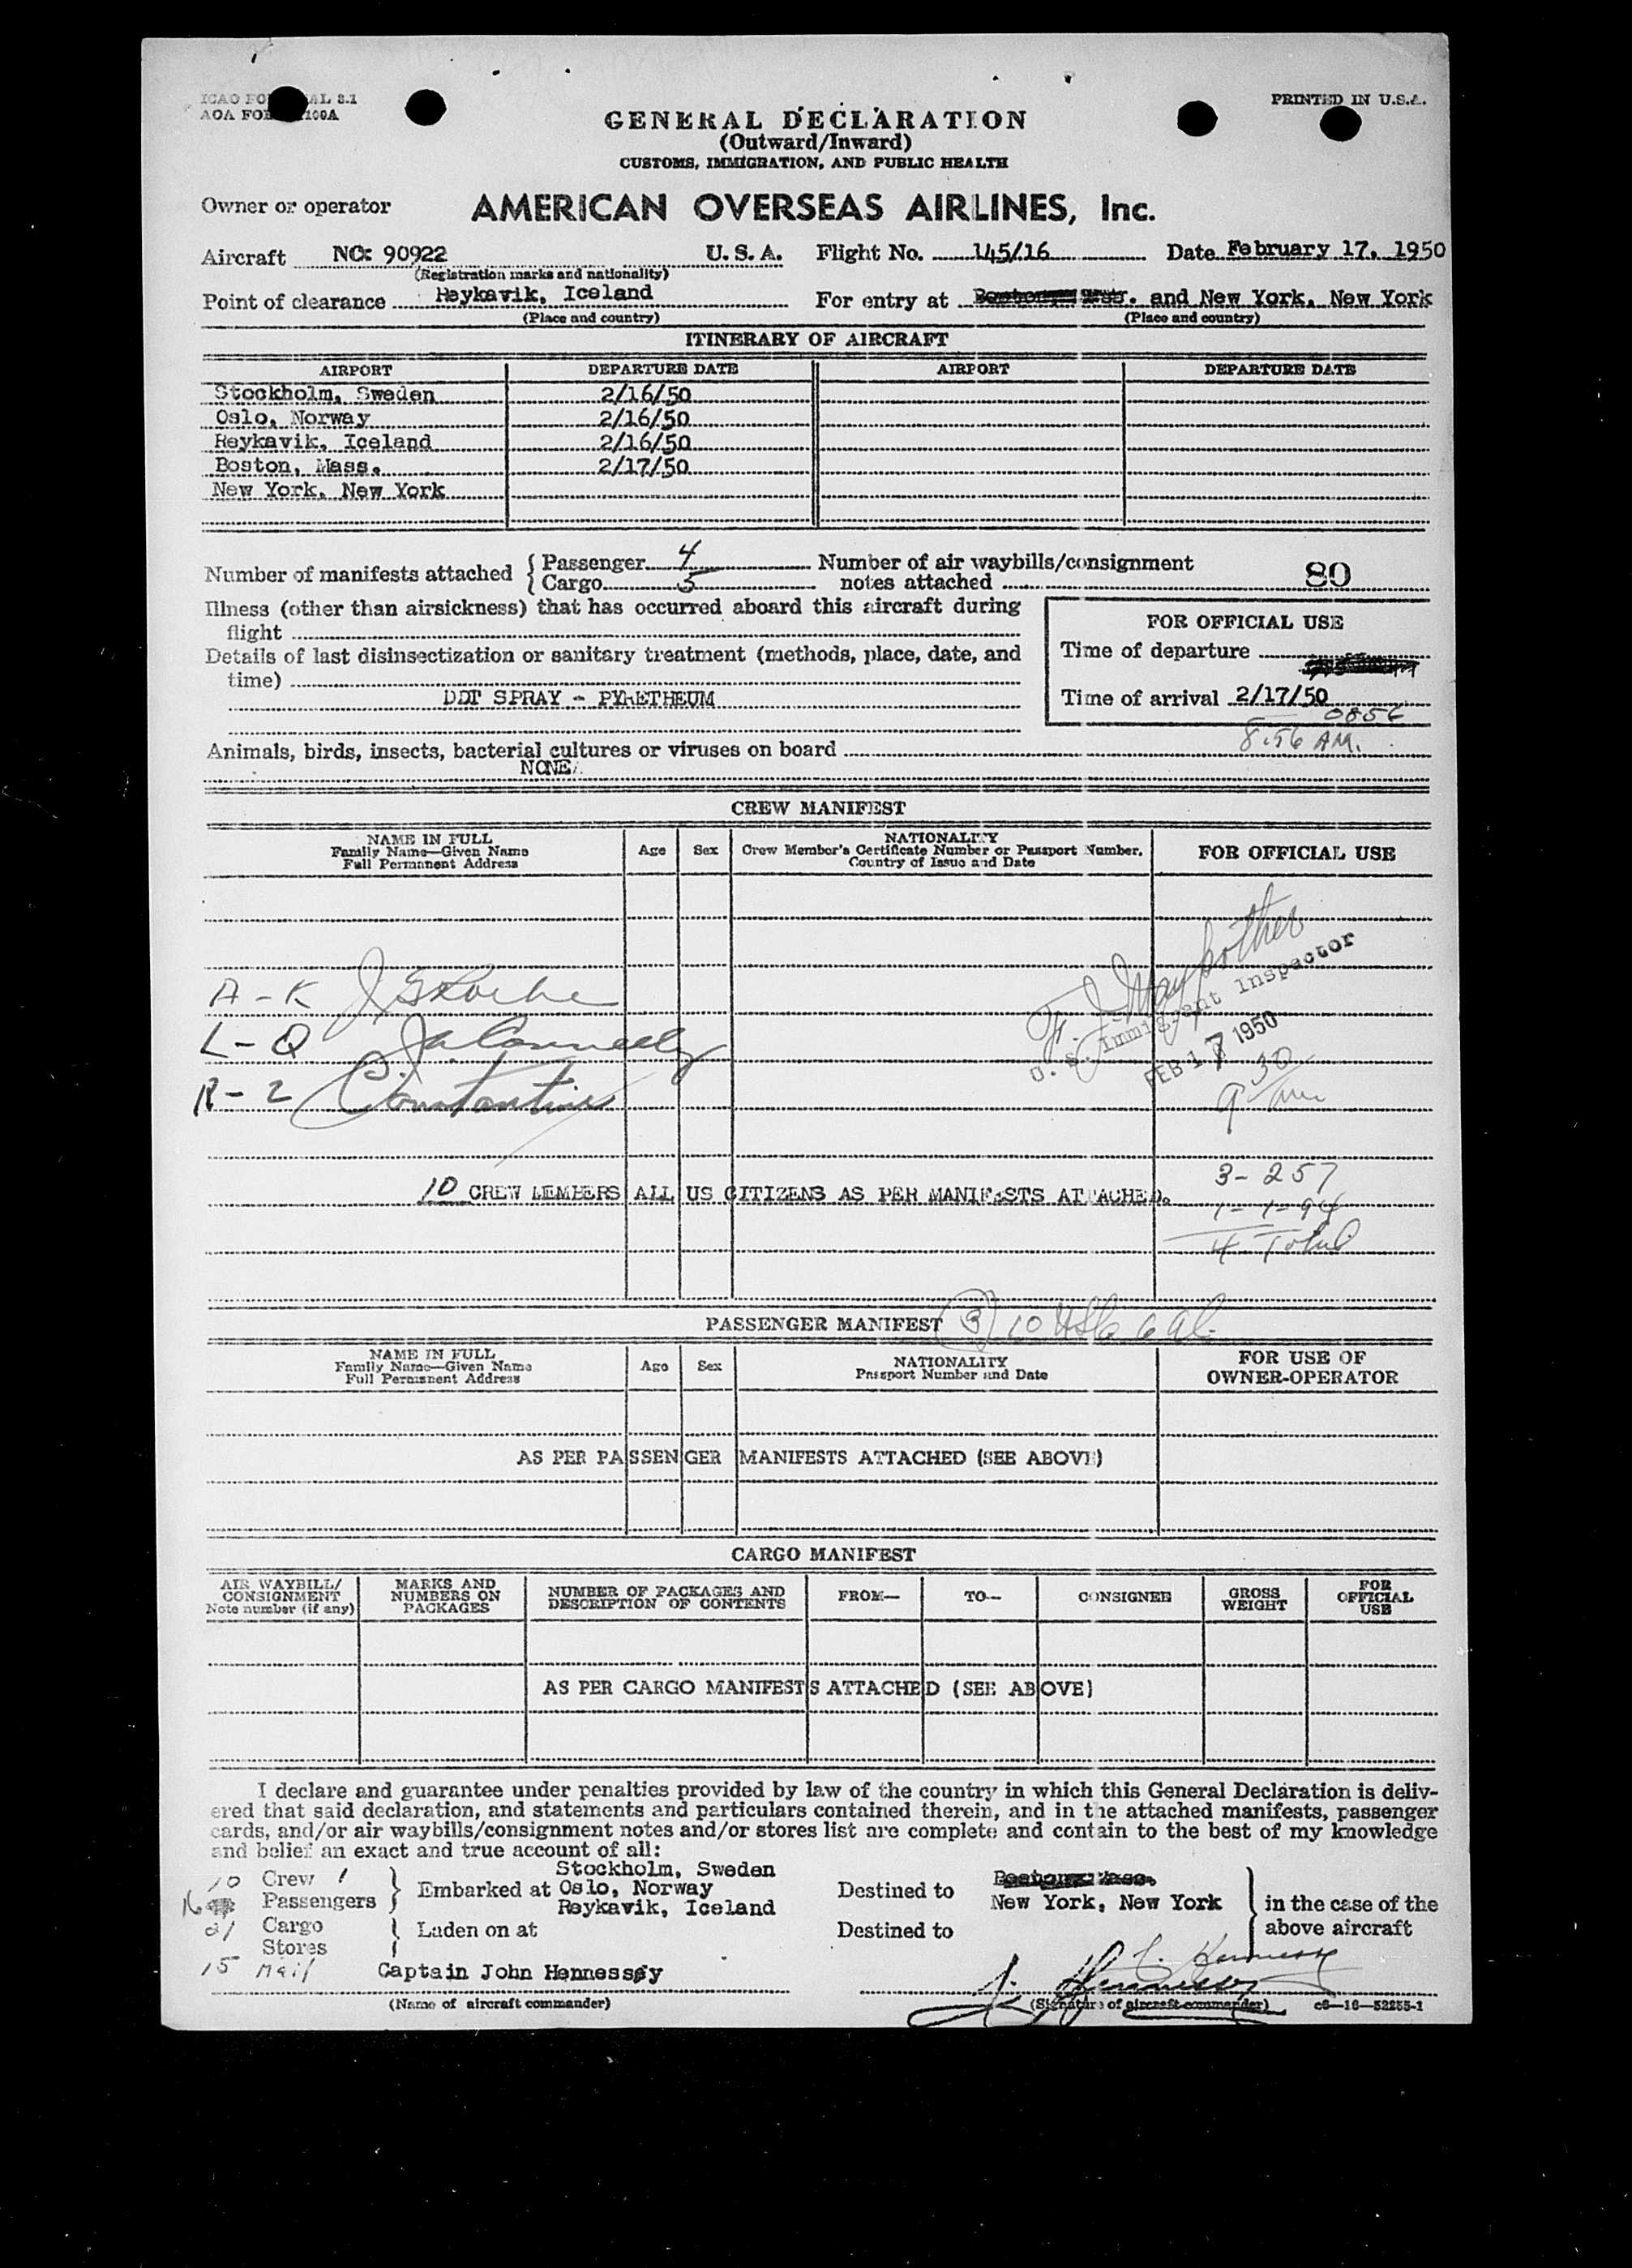 PRINTED IN U.S.A.
GENERAL DECLARATION
(Outward/Inward)
CUSTOMS, IMMIGRATION, AND PUBLIC HEALTH
Owner or operator AMERICAN OVERSEAS AIRLINES, Inc.
Aircraft NC: 90922 U. S. A. Flight No. 145/16 Date February 17, 1950
(Registration marks and nationality)
Point of clearance Reykavik, Iceland For entry at and New York, New York
(Place and country) (Place and country)
ITINERARY OF AIRCRAFT
AIRPORT DEPARTURE DATE AIRPORT DEPARTURE DATE
Stockholm, Sweden 2/16/50
Oslo, Norway 2/16/50
Reykavik, Iceland 2/16/50
Boston, Mass. 2/17/50
New York, New York
Number of manifests attached { Passenger 4 Number of air waybills/consignment
Cargo 5 notes attached 80
Illness (other than airsickness) that has occurred aboard this aircraft during
flight
FOR OFFICIAL USE
Details of last disinsectization or sanitary treatment (methods, place, date, and
time)
Time of departure
DDT SPRAY - PYRETHEUM
Time of arrival 2/17/50
0856
8.56 AM.
Animals, birds, insects, bacterial cultures or viruses on board
NONE
CREW MANIFEST
NAME IN FULL
Family Name—Given Name
Full Permanent Address
Age Sex
NATIONALITY
Crew Member's Certificate Number or Passport Number,
Country of Issue and Date
FOR OFFICIAL USE
A - K
L - Q
R - Z
U. S. Immigrant Inspector
FEB 17 1950
9 30 am
3 - 257
1 - 1-94
4 Total
10 CREW MEMBERS ALL US CITIZENS AS PER MANIFESTS ATTACHED.
PASSENGER MANIFEST (3) 10 USC 6 al.
NAME IN FULL
Family Name—Given Name
Full Permanent Address
Age Sex
NATIONALITY
Passport Number and Date
FOR USE OF
OWNER-OPERATOR
AS PER PASSENGER MANIFESTS ATTACHED (SEE ABOVE)
CARGO MANIFEST
AIR WAYBILL/
CONSIGNMENT
Note number (if any)
MARKS AND
NUMBERS ON
PACKAGES
NUMBER OF PACKAGES AND
DESCRIPTION OF CONTENTS
FROM— TO— CONSIGNEE
GROSS
WEIGHT
FOR
OFFICIAL
USE
AS PER CARGO MANIFESTS ATTACHED (SEE ABOVE)
I declare and guarantee under penalties provided by law of the country in which this General Declaration is deliv-
ered that said declaration, and statements and particulars contained therein, and in the attached manifests, passenger
cards, and/or air waybills/consignment notes and/or stores list are complete and contain to the best of my knowledge
and belief an exact and true account of all:
10 Crew
16 Passengers
Cargo
Stores
15 Mail
Embarked at Stockholm, Sweden
Oslo, Norway
Reykavik, Iceland
Laden on at
Destined to New York, New York
Destined to
in the case of the
above aircraft
Captain John Hennessey
(Name of aircraft commander)
J. Hennessy
(Signature of aircraft commander) c6—16—52255-1